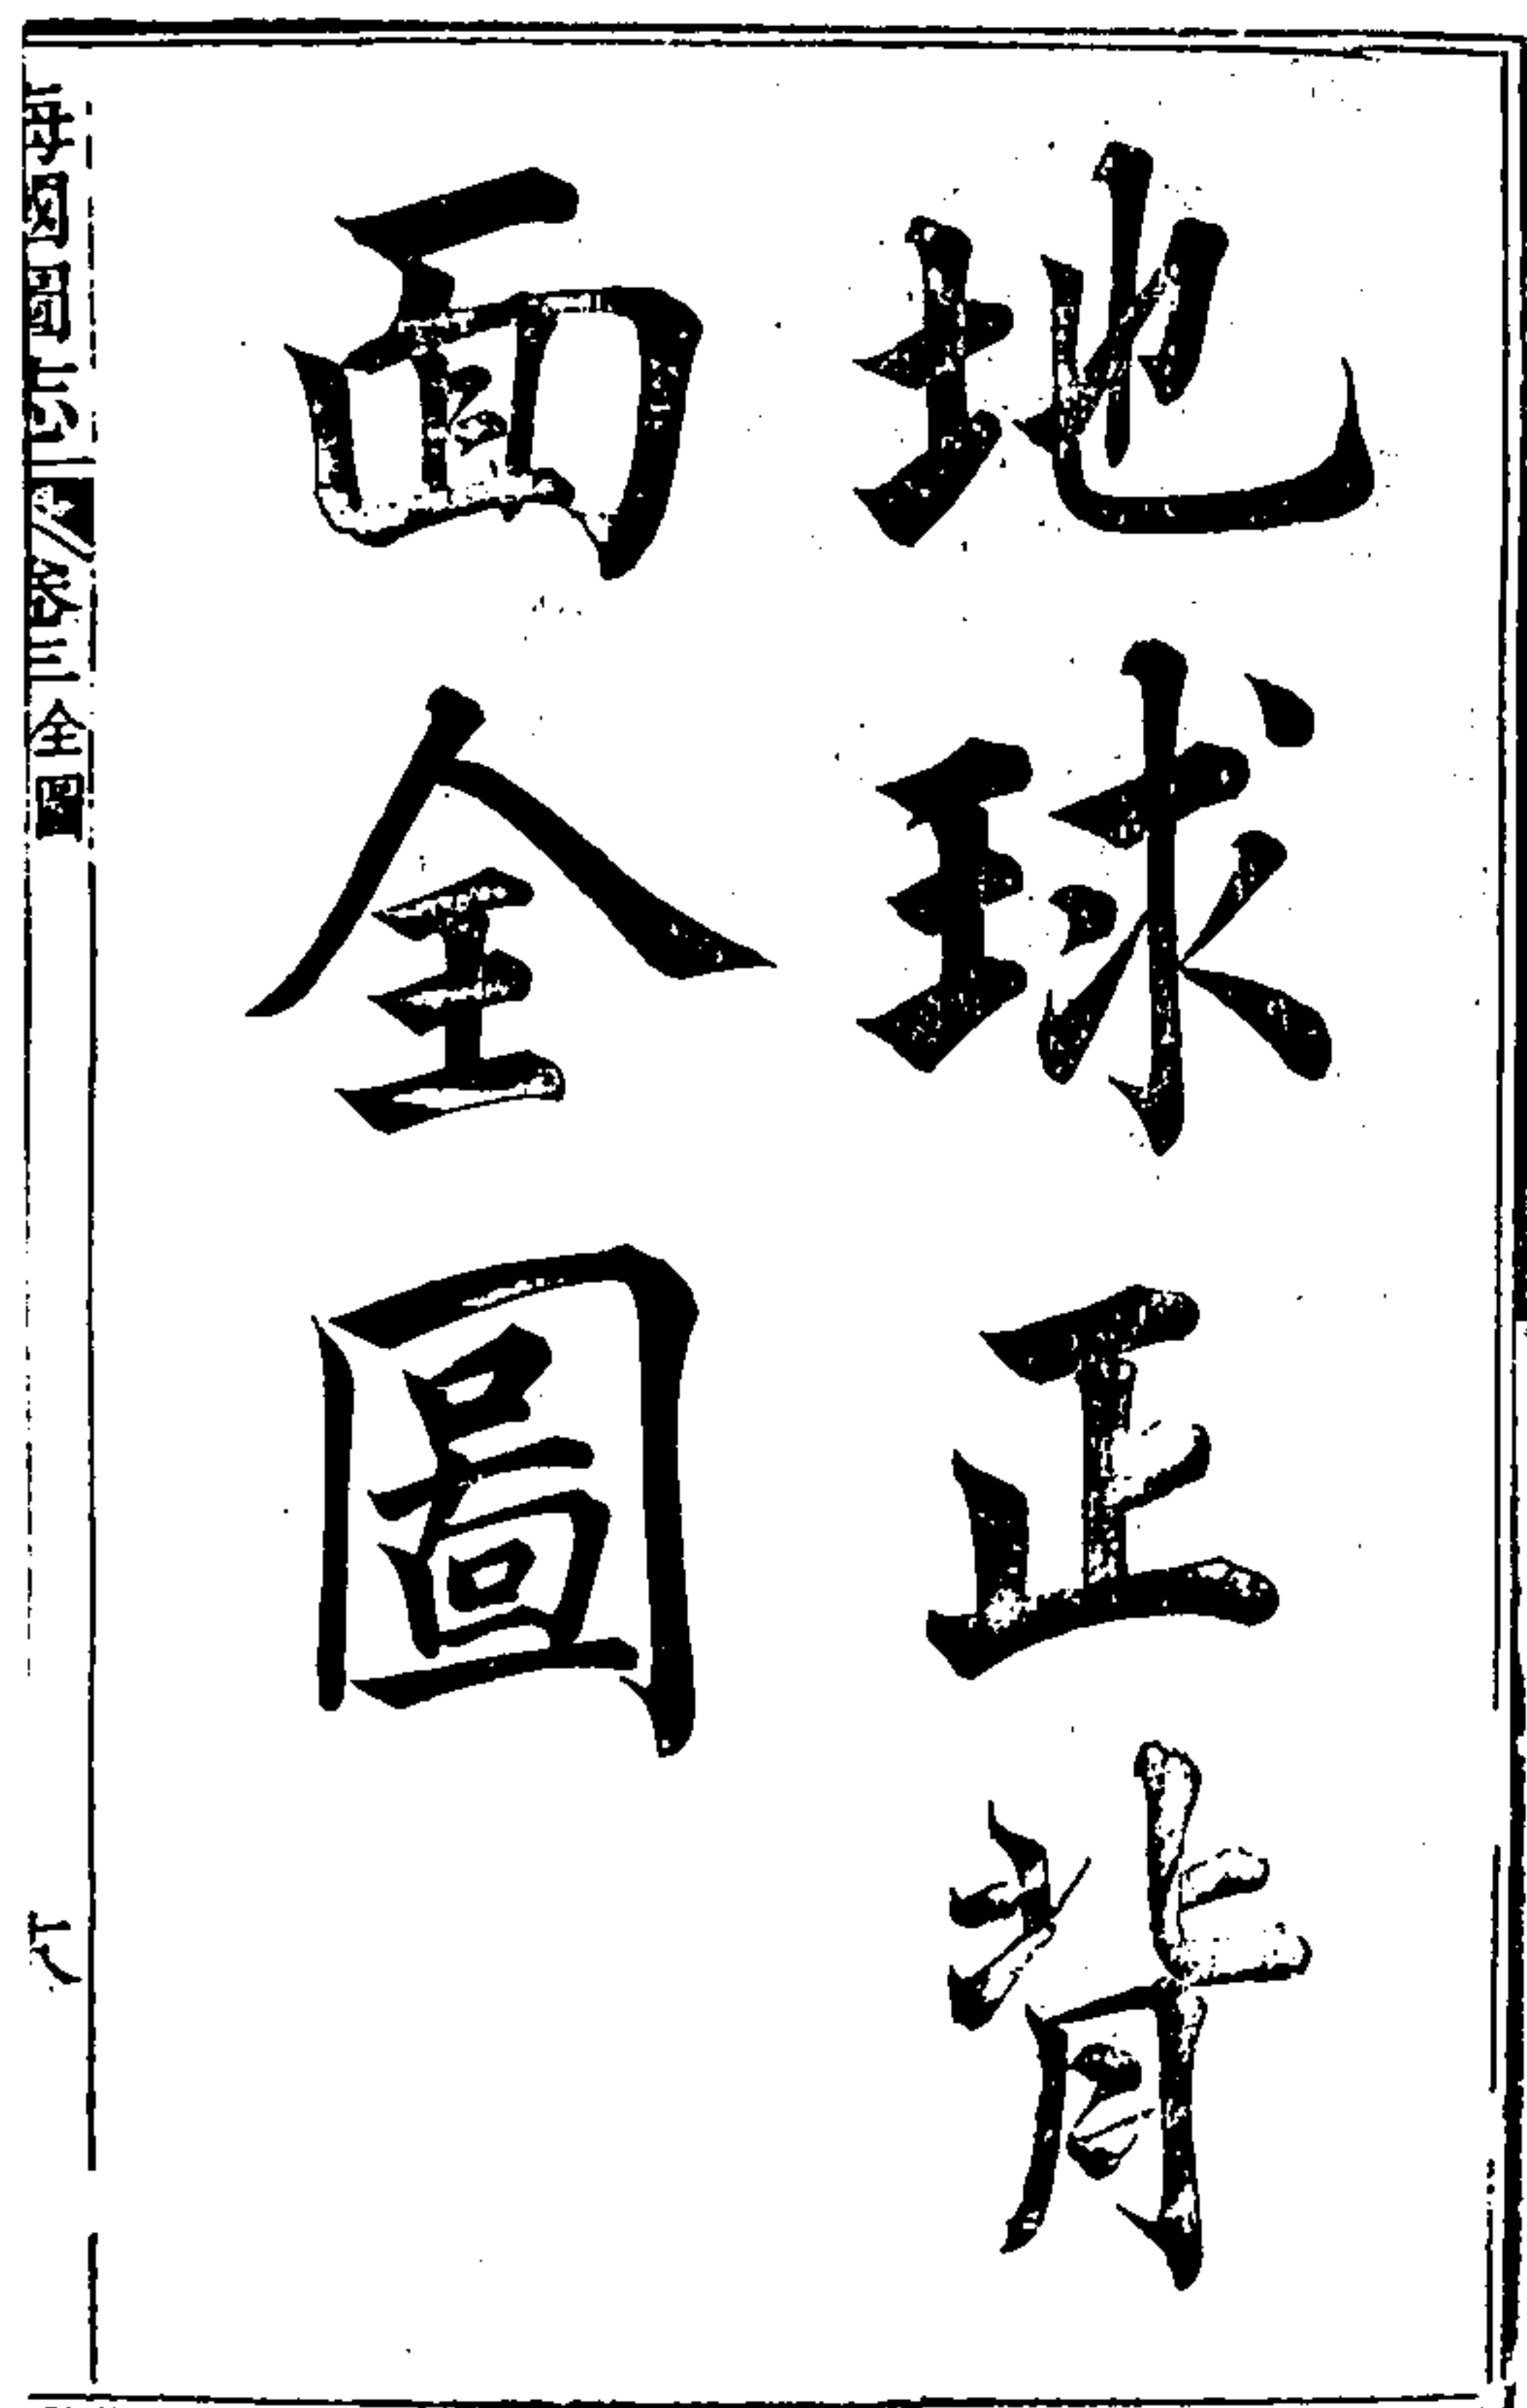 地球正背
面全圖
海國圖志 卷三 全圖
十八